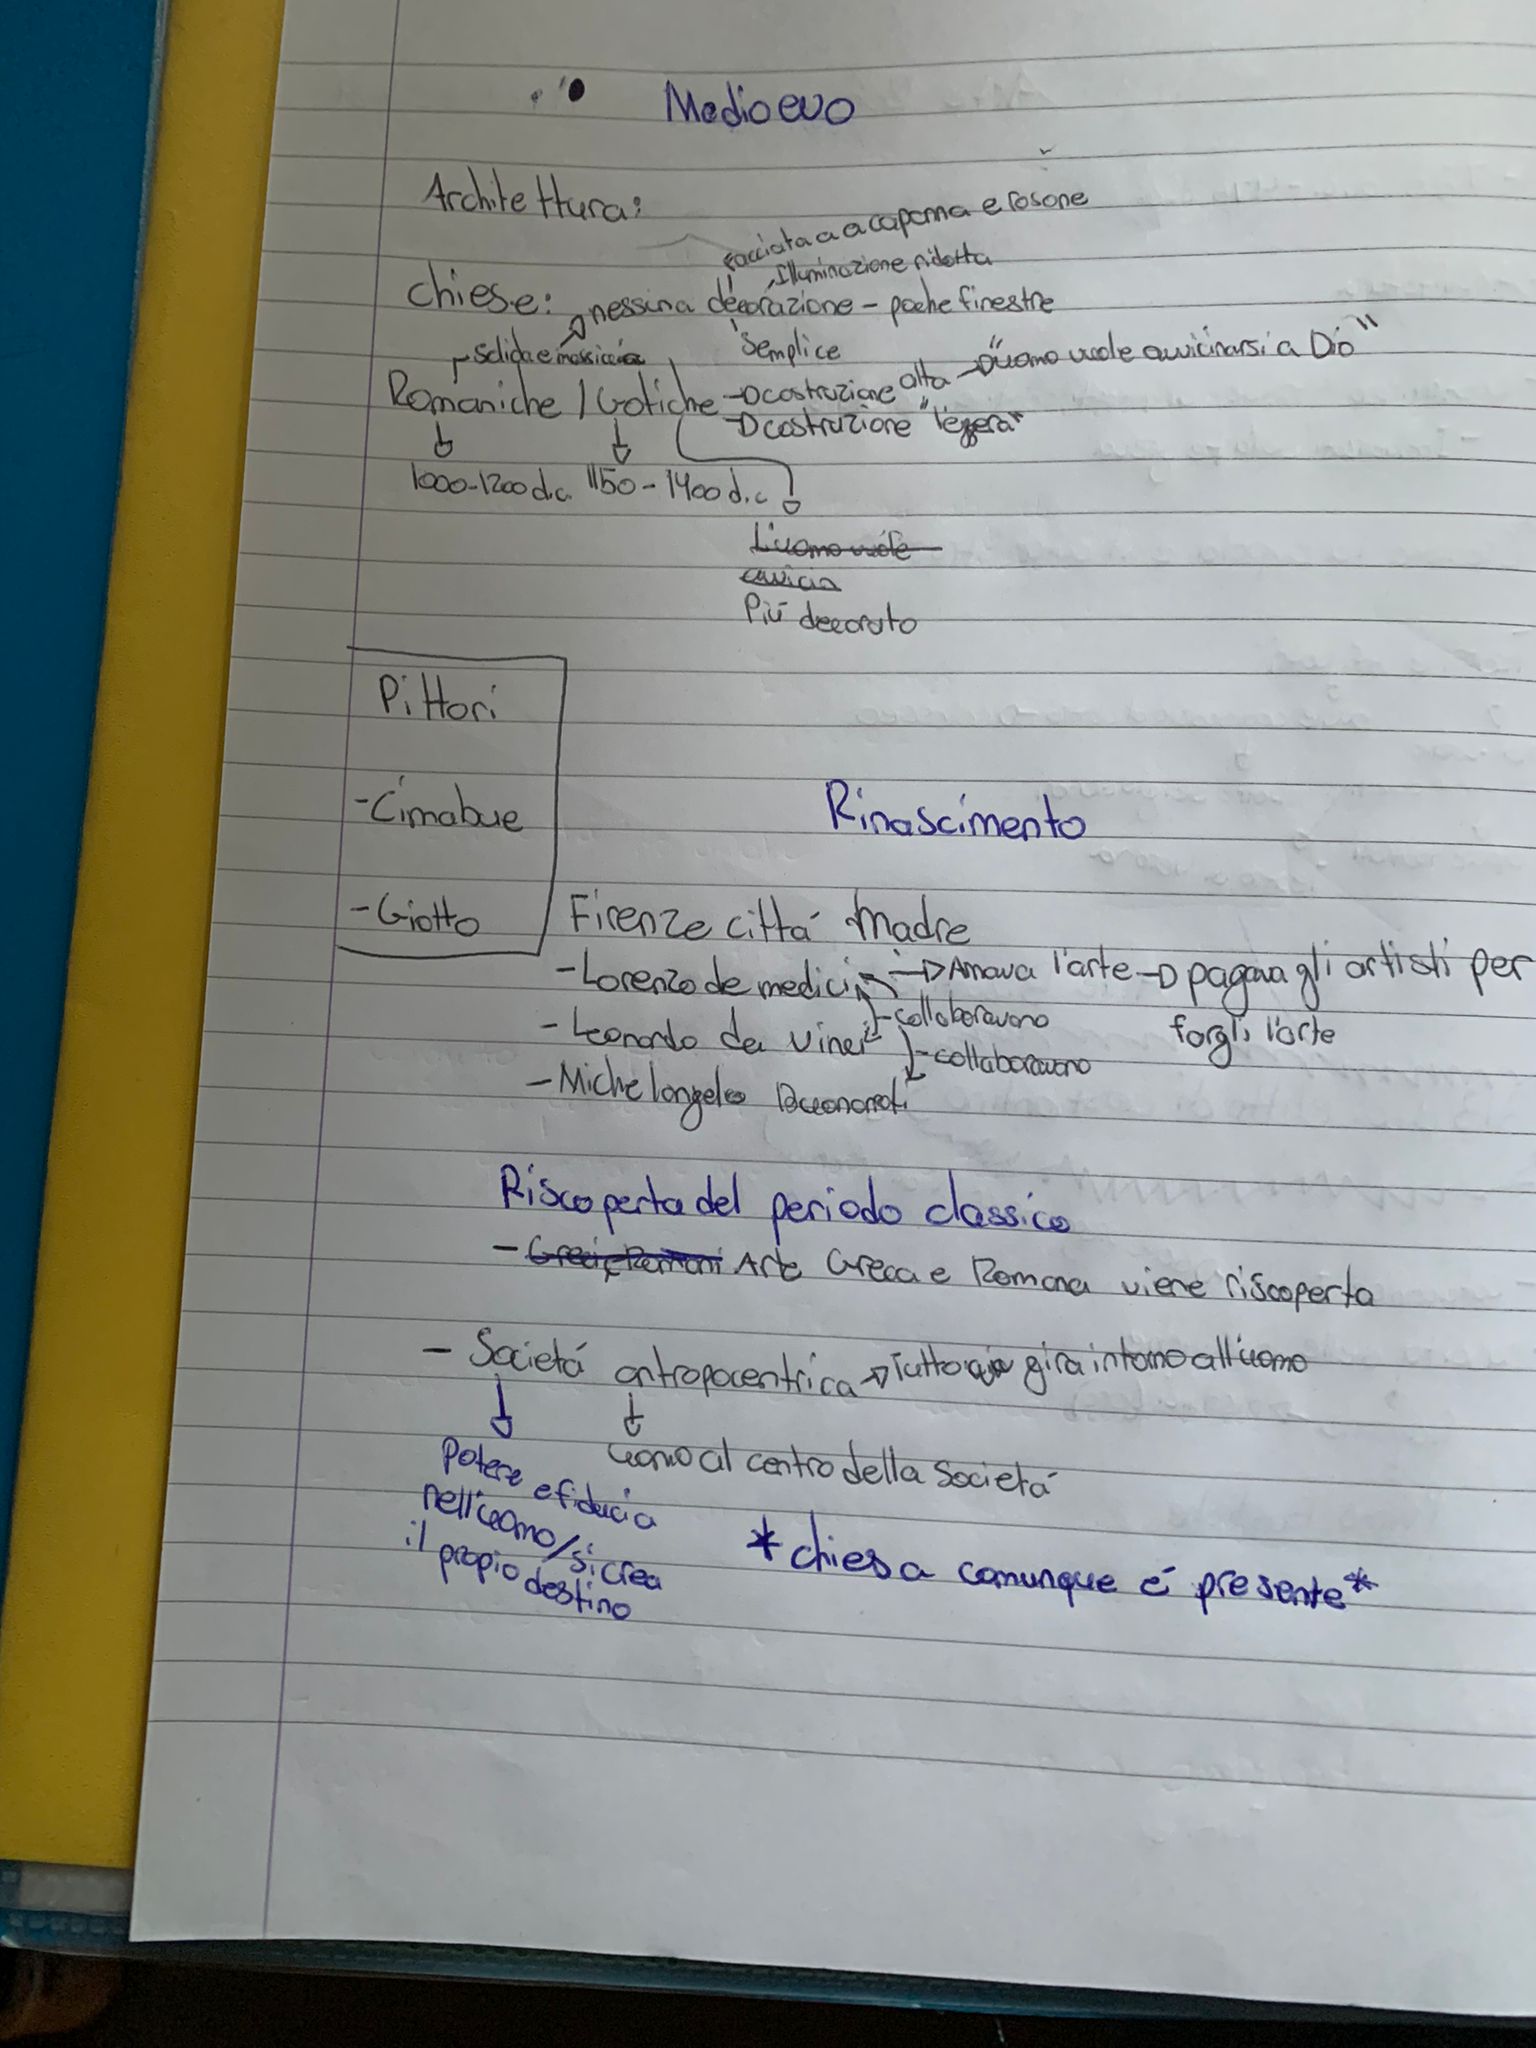 Medioevo
Architettura:
facciata a a capanna e rosone
Illuminazione ridotta
chiese: nessuna decorazione - poche finestre
solida e massiccia
Semplice
Romaniche / Gotiche → costruzione alta → "L'uomo vuole avvicinarsi a Dio"
→ costruzione "leggera"
1000-1200 d.c. 1150-1400 d.c
L'uomo vuole
avvicin
Più decorato
Pittori
- Cimabue
- Giotto
Rinascimento
Firenze cittá Madre
- Lorenzo de medici → Amava l'arte → pagava gli artisti per
fargli l'arte
- collaboravano
- Leonardo da Vinci
- collaboravano
- Michelangelo Buonarroti
Riscoperta del periodo classico
- Greci e Romani Arte Greca e Romana viene riscoperta
- Societá antropocentrica → Tutto gira intorno all'uomo
uomo al centro della Societá
Potere e fiducia
nell'uomo/si crea
il propio destino
*chiesa comunque é presente*